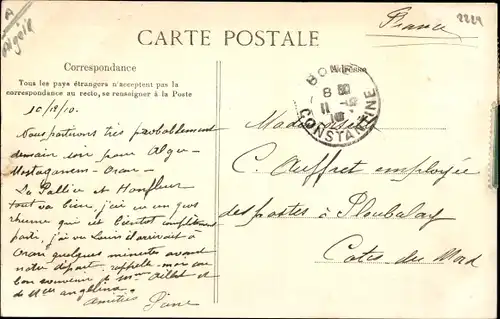 Algérie
France
2224
CARTE POSTALE
Correspondance
Adresse
Tous les pays étrangers n'acceptent pas la
correspondance au recto, se renseigner à la Poste
BONE
8 30
11
10
CONSTANTINE
10/12/10.
Nous partirons très probablement
demain soir pour Alger
Mostaganem - Oran -
La Pallice et Honfleur
tout va bien, j'ai eu un gros
rhume qui est bientôt complètement
parti, j'ai vu Louis il arrivait à
Oran quelques minutes avant
notre départ. rappelle moi au
bon souvenir de Mme et
de Mlles Angelina.
Amitiés
Mademoiselle
C. Auffret employée
des postes à Ploubalay
Cotes du Nord